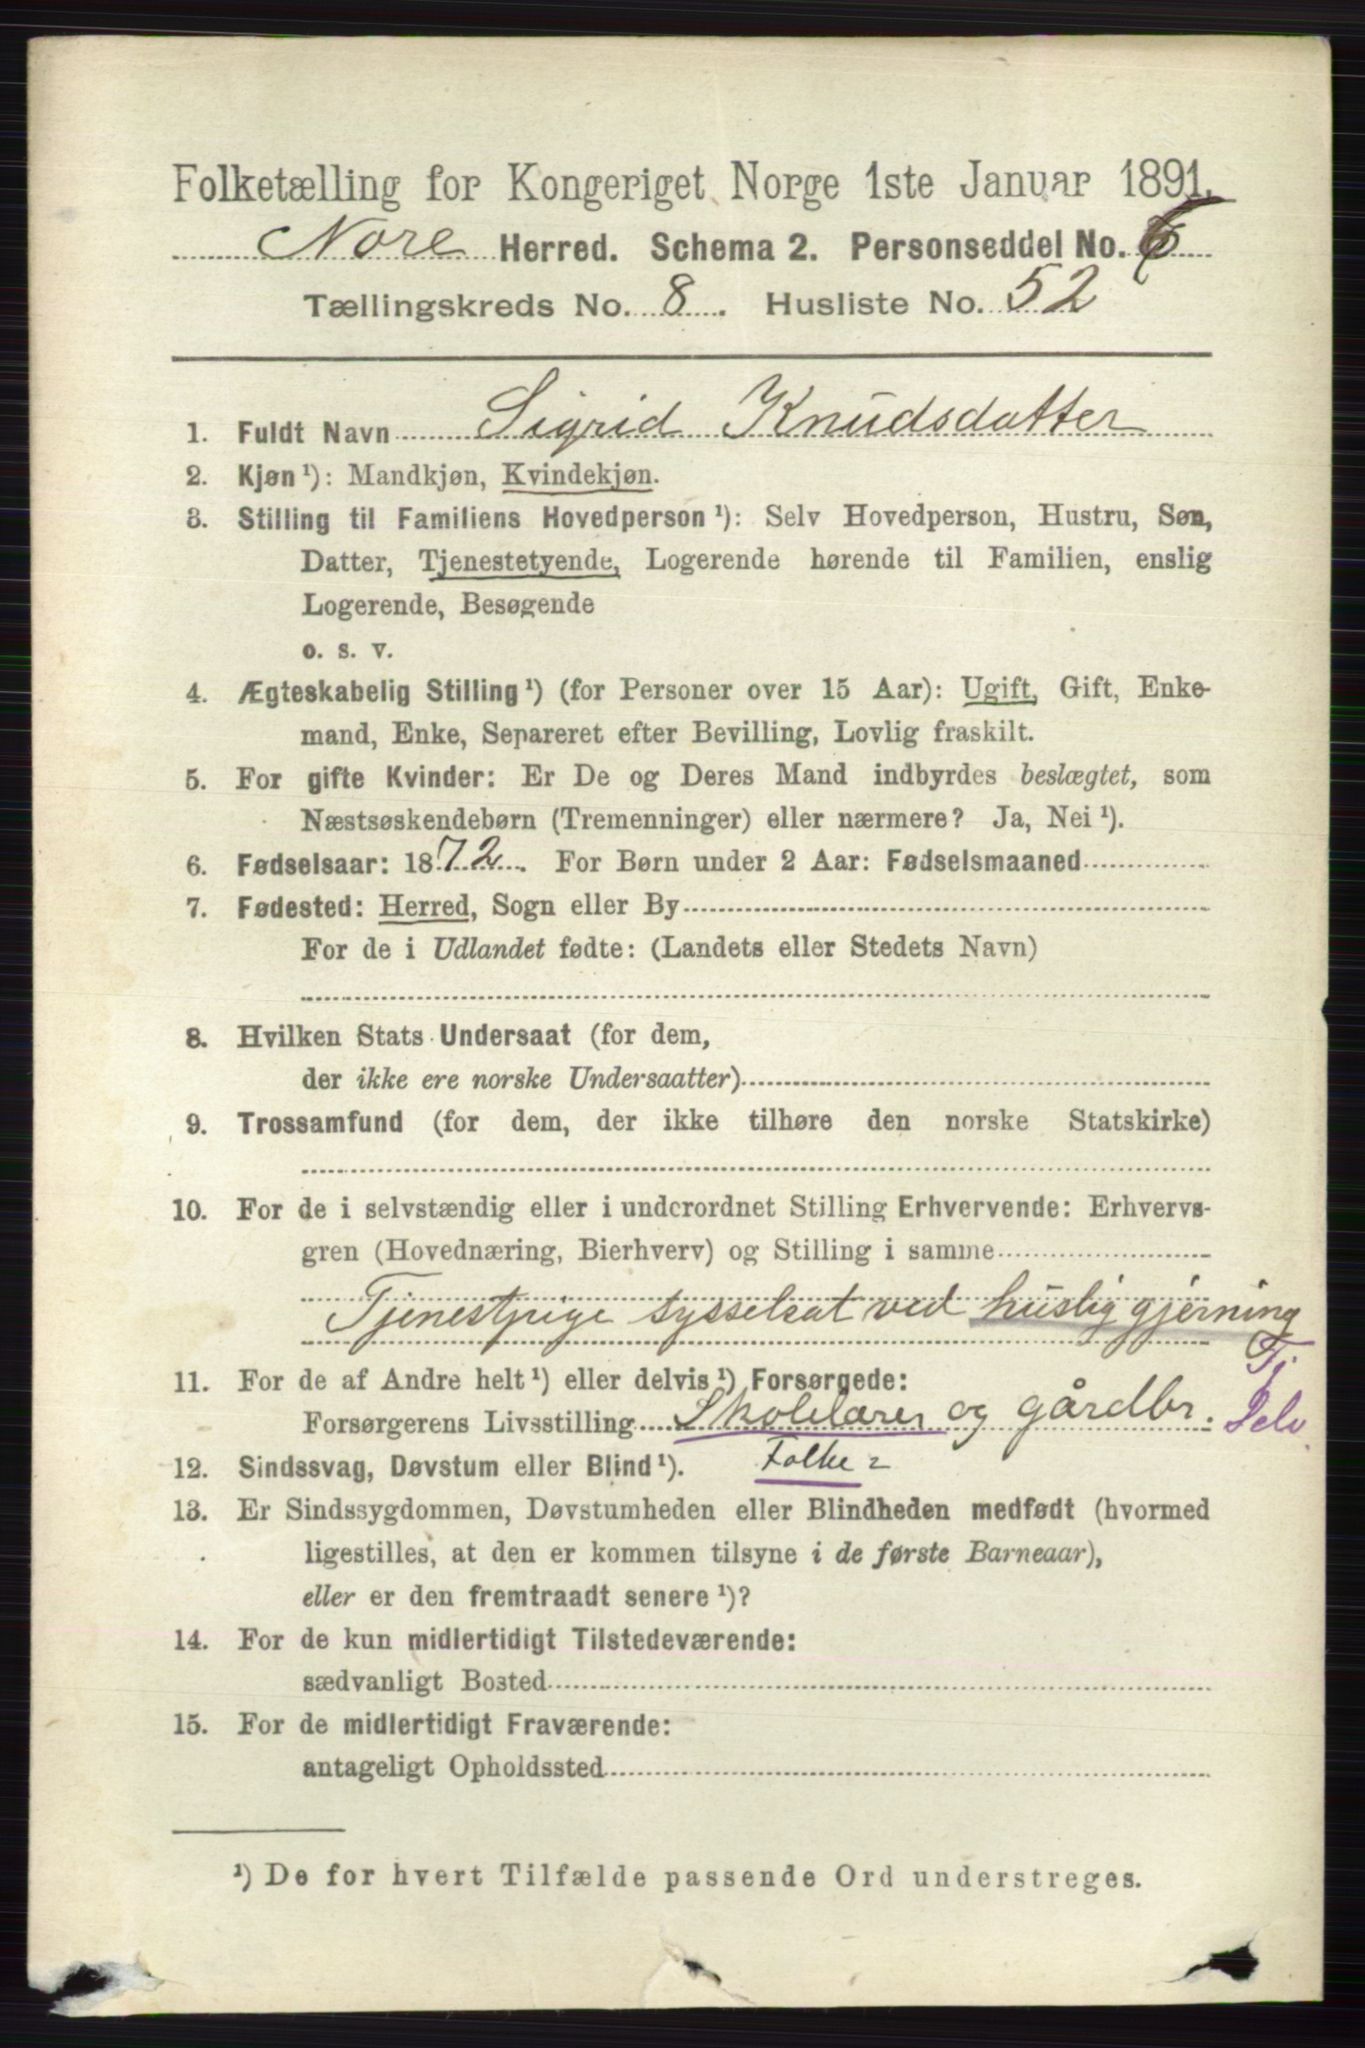 Folketælling for Kongeriget Norge 1ste Januar 1891.
Nore Herred. Schema 2. Personseddel No. 6
Tællingskreds No. 8. Husliste No. 52
1. Fuldt Navn Sigrid Knudsdatter
2. Kjøn ¹): Mandkjøn, Kvindekjøn.
3. Stilling til Familiens Hovedperson ¹): Selv Hovedperson, Hustru, Søn,
Datter, Tjenestetyende, Logerende hørende til Familien, enslig
Logerende, Besøgende
o. s. v.
4. Ægteskabelig Stilling ¹) (for Personer over 15 Aar): Ugift, Gift, Enke-
mand, Enke, Separeret efter Bevilling, Lovlig fraskilt.
5. For gifte Kvinder: Er De og Deres Mand indbyrdes beslægtet, som
Næstsøskendebørn (Tremenninger) eller nærmere? Ja, Nei ¹).
6. Fødselsaar: 1872. For Børn under 2 Aar: Fødselsmaaned
7. Fødested: Herred, Sogn eller By
For de i Udlandet fødte: (Landets eller Stedets Navn)
8. Hvilken Stats Undersaat (for dem,
der ikke ere norske Undersaatter)
9. Trossamfund (for dem, der ikke tilhøre den norske Statskirke)
10. For de i selvstændig eller i underordnet Stilling Erhvervende: Erhvervs-
gren (Hovednæring, Bierhverv) og Stilling i samme
Tjenestpige sysselsat ved huslig gjerning
Tj
11. For de af Andre helt ¹) eller delvis ¹) Forsørgede:
Forsørgerens Livsstilling Skolelærer og gårdbr. Selv
12. Sindssvag, Døvstum eller Blind ¹). Folke=
13. Er Sindssygdommen, Døvstumheden eller Blindheden medfødt (hvormed
ligestilles, at den er kommen tilsyne i de første Barneaar),
eller er den fremtraadt senere ¹)?
14. For de kun midlertidigt Tilstedeværende:
sædvanligt Bosted
15. For de midlertidigt Fraværende:
antageligt Opholdssted
¹) De for hvert Tilfælde passende Ord understreges.